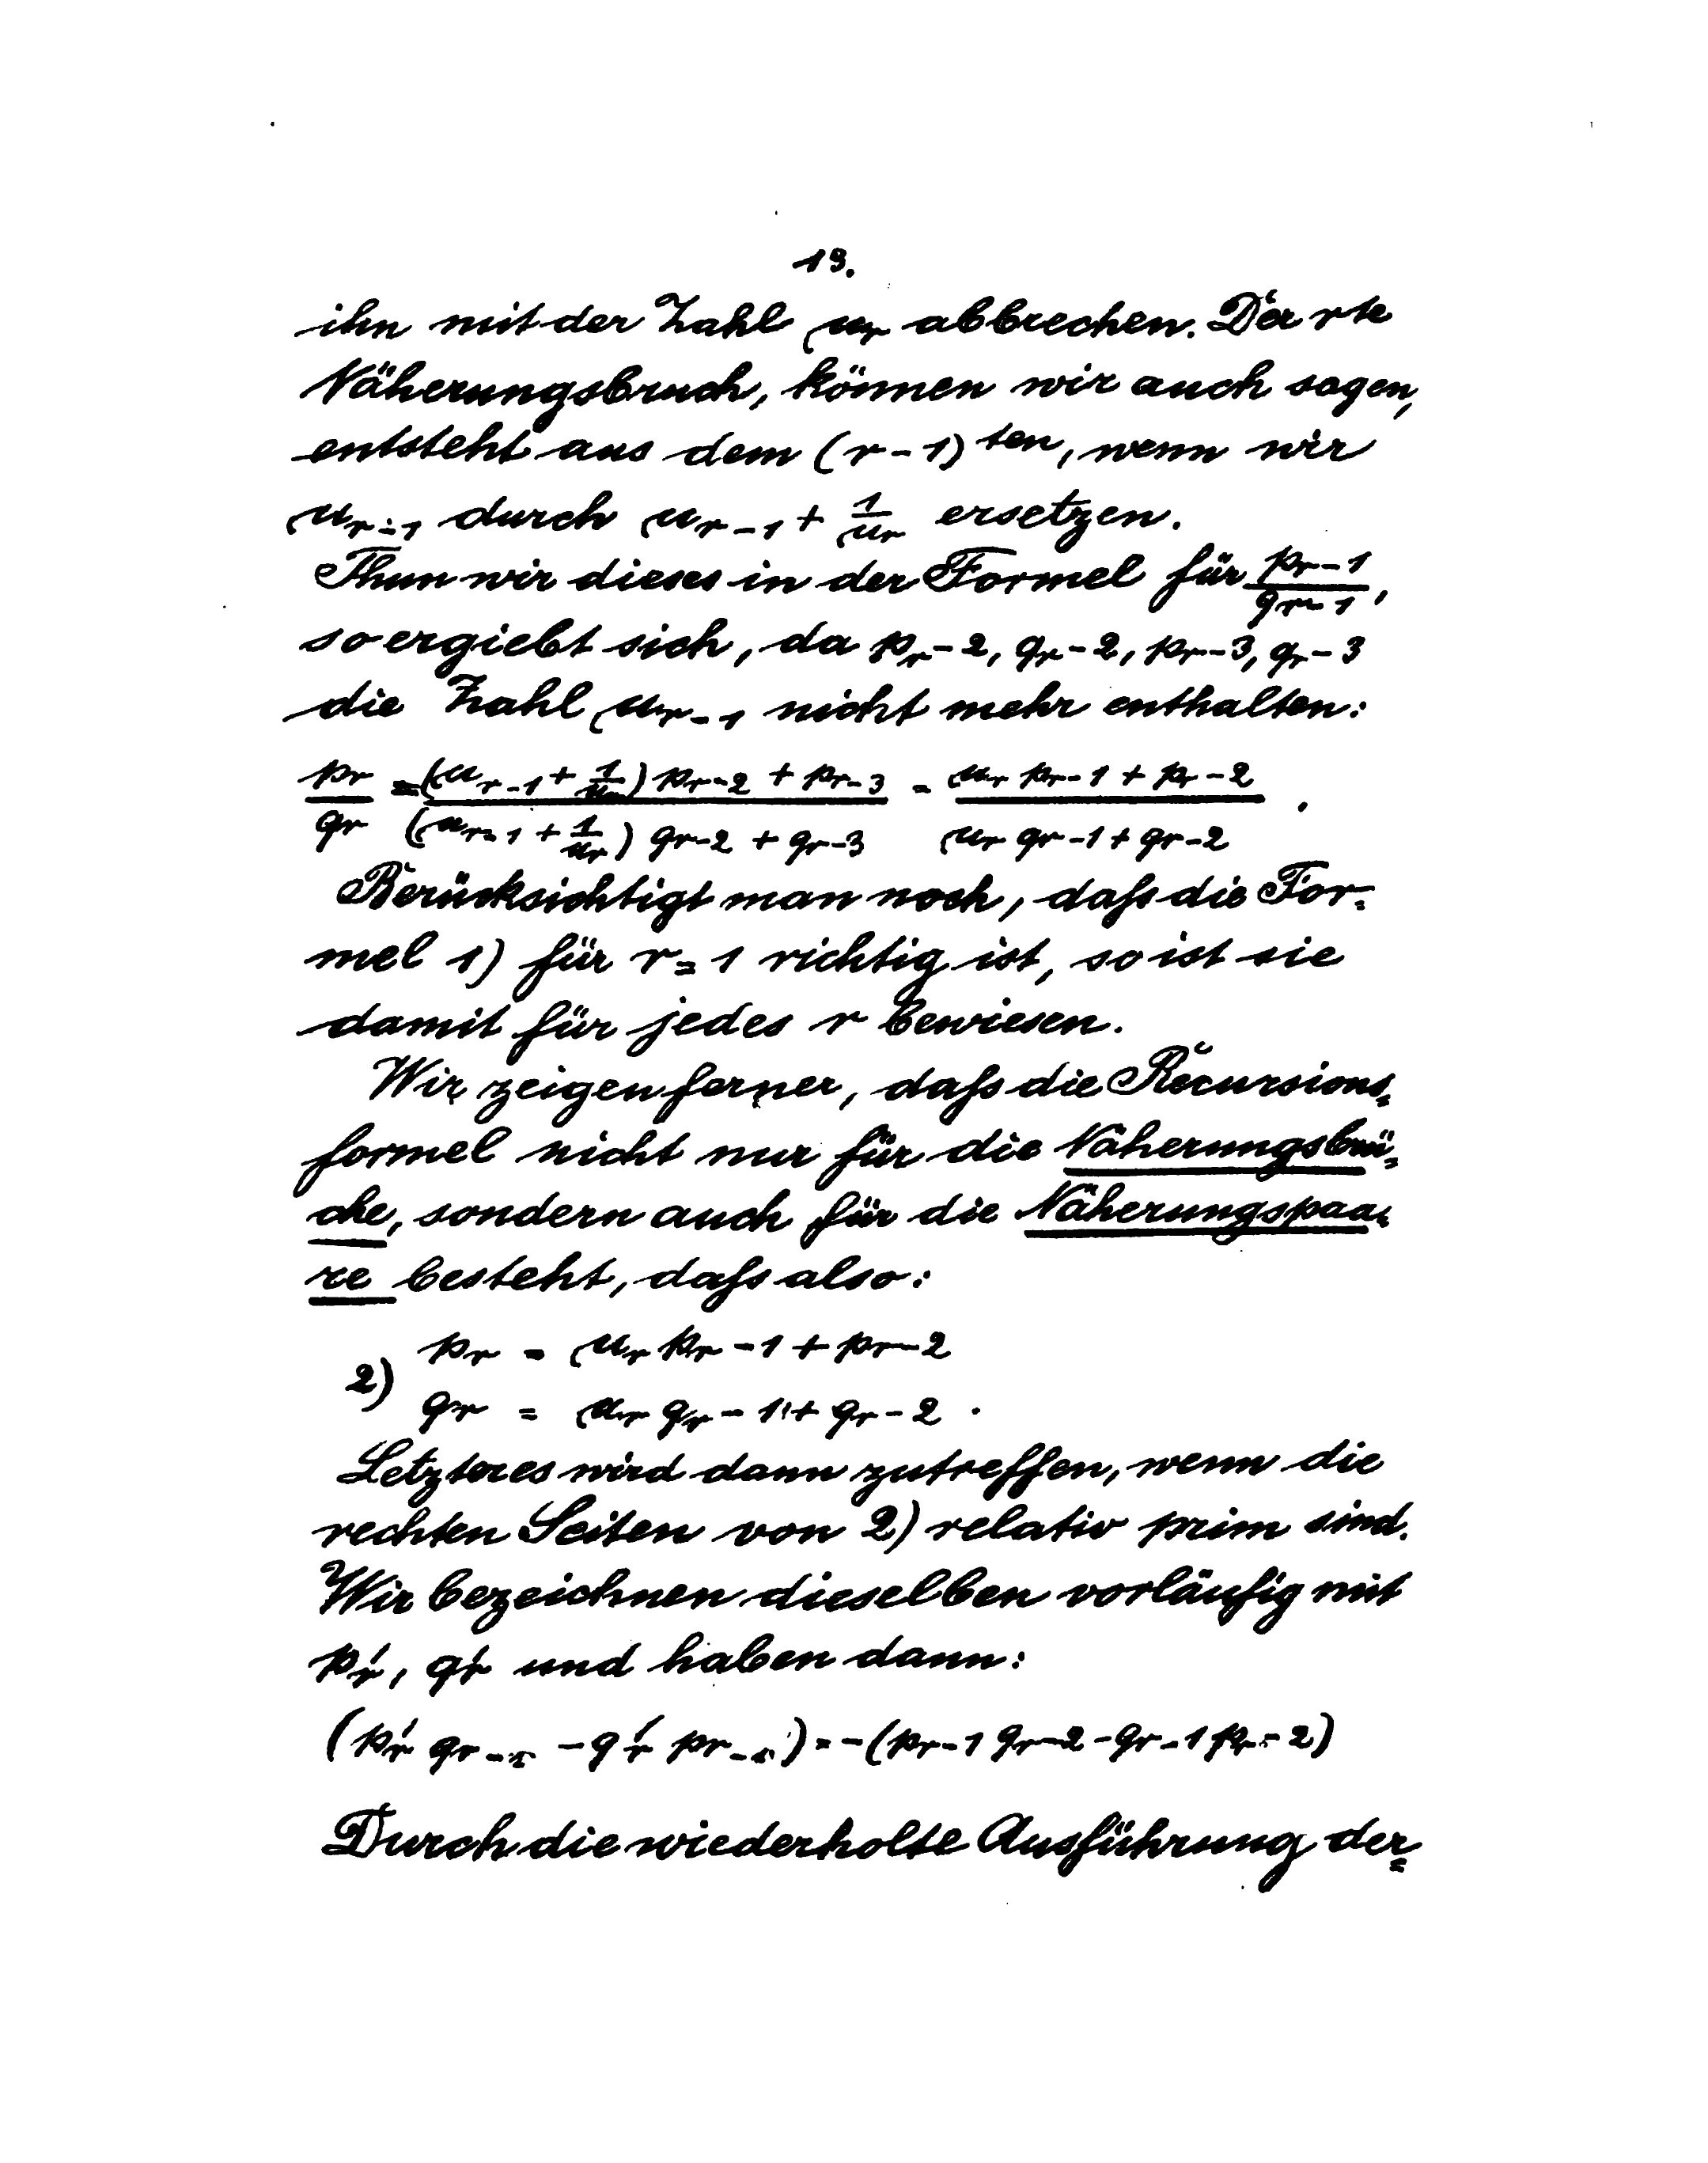 19.
ihn mit der Zahl μ_r abbrechen. Der rte
Näherungsbruch, können wir auch sagen,
entsteht aus dem (r-1)ten, wenn wir
μ_{r-1} durch μ_{r-1} + 1/μ_r ersetzen.
Thun wir dieses in der Formel für p_{r-1}/q_{r-1},
so ergiebt sich, da p_{r-2}, q_{r-2}, p_{r-3}, q_{r-3}
die Zahl μ_{r-1} nicht mehr enthalten:
p_r/q_r = ((μ_{r-1} + 1/μ_r) p_{r-2} + p_{r-3})/((μ_{r-1} + 1/μ_r) q_{r-2} + q_{r-3}) = (μ_r p_{r-1} + p_{r-2})/(μ_r q_{r-1} + q_{r-2}).
Berücksichtigt man noch, daß die For=
mel 1) für r=1 richtig ist, so ist sie
damit für jedes r bewiesen.
Wir zeigen ferner, daß die Recursions=
formel nicht nur für die Näherungsbrü=
che, sondern auch für die Näherungspaa=
re besteht, daß also:
2) p_r = μ_r p_{r-1} + p_{r-2}
q_r = μ_r q_{r-1} + q_{r-2}.
Letzteres wird dann zutreffen, wenn die
rechten Seiten von 2) relativ prim sind.
Wir bezeichnen dieselben vorläufig mit
p'_r, q'_r und haben dann:
(p'_r q_{r-1} - q'_r p_{r-1}) = -(p_{r-1} q_{r-2} - q_{r-1} p_{r-2})
Durch die wiederholte Ausführung der=